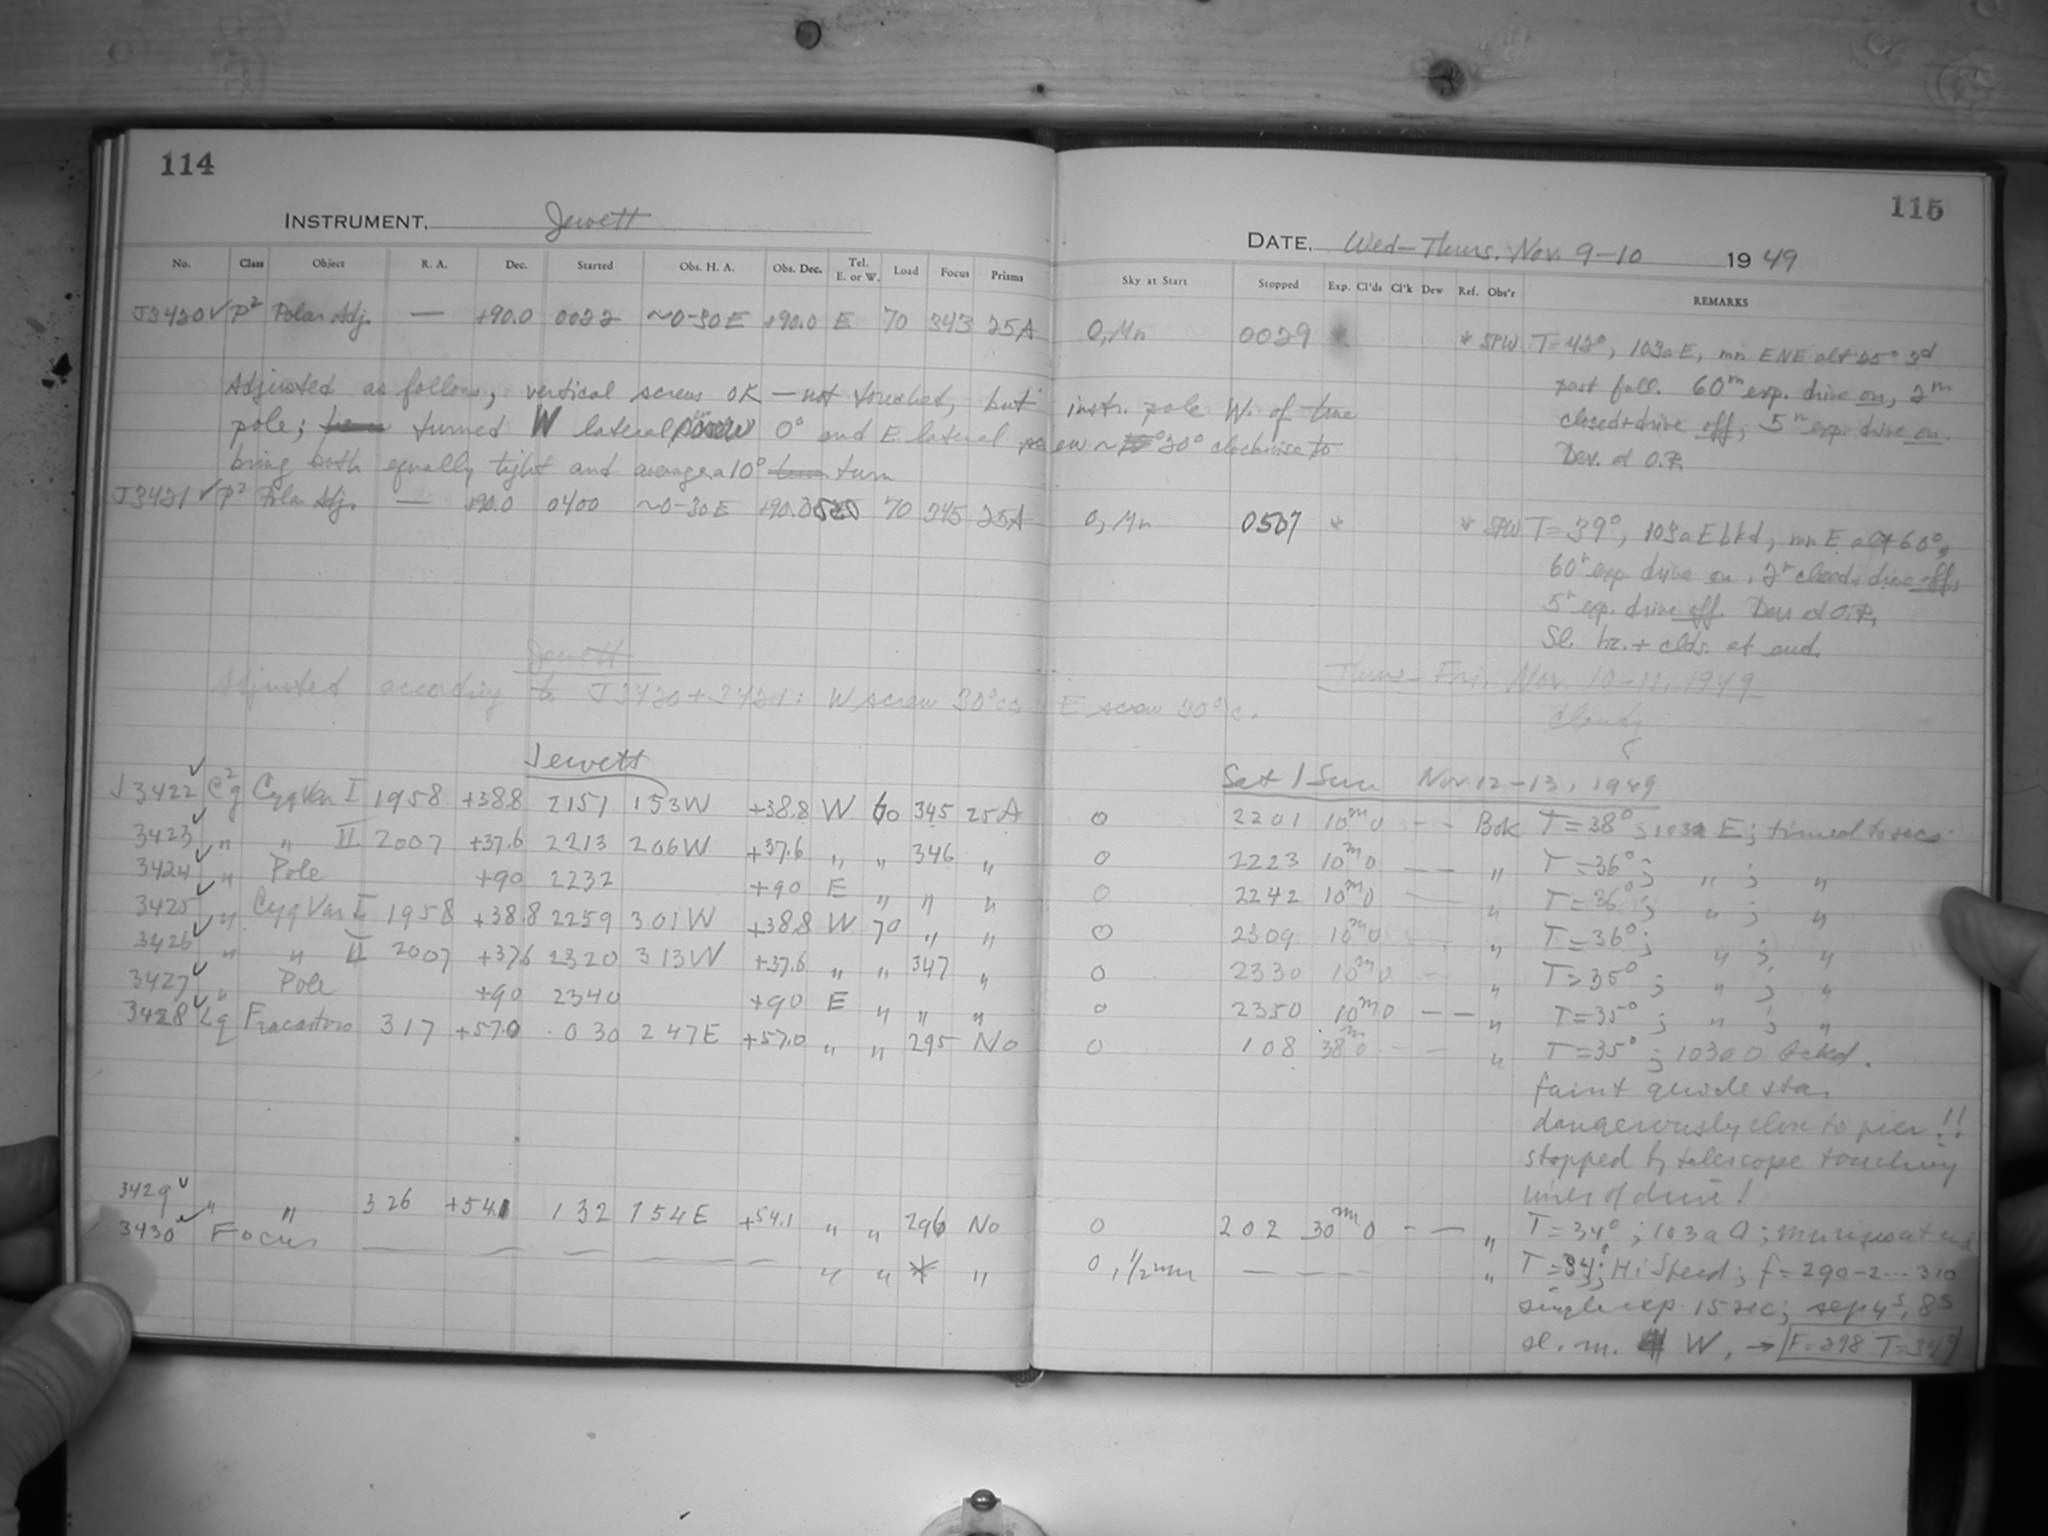 114
INSTRUMENT, Jewett
No. Class Object R. A. Dec. Started Obs. H. A. Obs. Dec. Tel. E. or W. Load Focus Prisms
J3420 ✓ P2 Polar Adj. — +90.0 0022 ~0-30E +90.0 E 70 343 25A
Adjusted as follows, vertical screws OK — not touched, but instr. pole W. of true
pole; turned W lateral screw 0° and E lateral screw ~ 30° clockwise to
bring both equally tight and average a 10° turn
J3421 ✓ P2 Polar Adj. — +90.0 0400 ~0-30E +90.0 70 345 25A
Jewett
Adjusted according to J3420+3421: W screw 30°cc E screw 30°c.
Jewett
J3422 ✓ Cg2 Cyg Var I 1958 +38.8 2151 153W +38.8 W 60 345 25A
3423 ✓ " " II 2007 +37.6 2213 206W +37.6 " " 346 "
3424 ✓ " Pole +90 2232 +90 E " " "
3425 ✓ " Cyg Var I 1958 +38.8 2259 301W +38.8 W 70 " "
3426 ✓ " " II 2007 +37.6 2320 313W +37.6 " " 347 "
3427 ✓ " Pole +90 2340 +90 E " " "
3428 ✓ Lg Fracastoro 317 +57.0 030 247E +57.0 " " 295 No
3429 ✓ " " 326 +54.1 132 154E +54.1 " " 296 No
3430 ✓ Focus — — — — — " " * "
115
DATE, Wed-Thurs. Nov. 9-10 1949
Sky at Start Stopped Exp. Cl'ds Cl'k Dew Ref. Obs'r REMARKS
0, Mn 0029 * * SPW T=42°, 103aE, mn ENE alt 25° 3d
past full. 60m exp. drive on, 2m
closed+drive off, 5m exp. drive on.
Dev. at O.R.
0, Mn 0507 * * SPW T=39°, 103aE bkd, mn E alt 60°,
60m exp. drive on, 2m closed+drive off,
5m exp. drive off. Dev at O.R.
Sl. hz. + clds. at end.
Thurs-Fri. Nov. 10-11, 1949
Cloudy
Sat / Sun Nov. 12-13, 1949
0 2201 10m 0 - - Bok T=38°; 103a E; timed to secs
0 2223 10m 0 - - " T=36°; " ; "
0 2242 10m 0 - - " T=36°; " ; "
0 2309 10m 0 - - " T=36°; " ; "
0 2330 10m 0 - - " T=35°; " ; "
0 2350 10m 0 - - " T=35°; " ; "
0 108 38m 0 - - " T=35°; 103a O backed.
faint guide star
dangerously close to pier!!
stopped by telescope touching
of drive!
0 202 30m 0 - - " T=34°; 103a O;
0, 1/2 mn — — — " T=34°; Hi Speed; f=290-2...310
single exp. 15 sec; sep 4s, 8s
sl. m. W, → F=298 T=34°